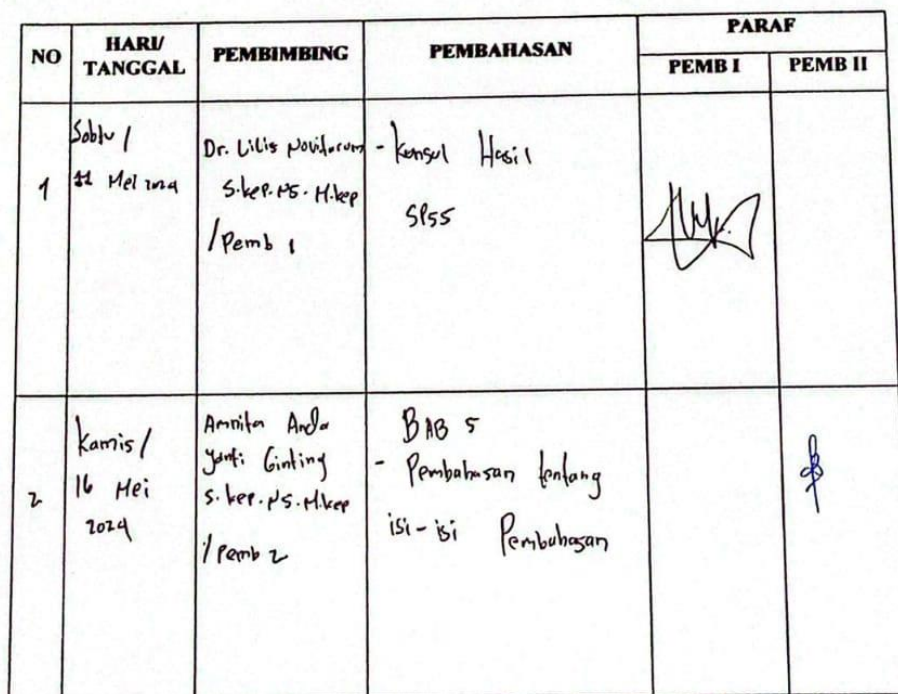 NO
HARI/
TANGGAL
PEMBIMBING
PEMBAHASAN
PARAF
PEMB I
PEMB II
1
Sabtu /
11 Mei 2024
Dr. Lilis Novitarum
S.kep.Ns.M.kep
/Pemb 1
- Konsul Hasil
SPSS
2
Kamis /
16 Mei
2024
Amnita Anda
yanti Ginting
S.kep.Ns.M.kep
/Pemb 2
BAB 5
- Pembahasan tentang
isi-isi Pembahasan